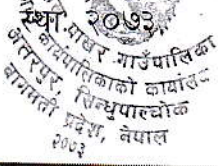 स्था. २०७३
पाखर गाउँपालिका
कार्यपालिकाको कार्यालय
अत्तरपुर, सिन्धुपाल्चोक
बागमती प्रदेश, नेपाल
२०७३